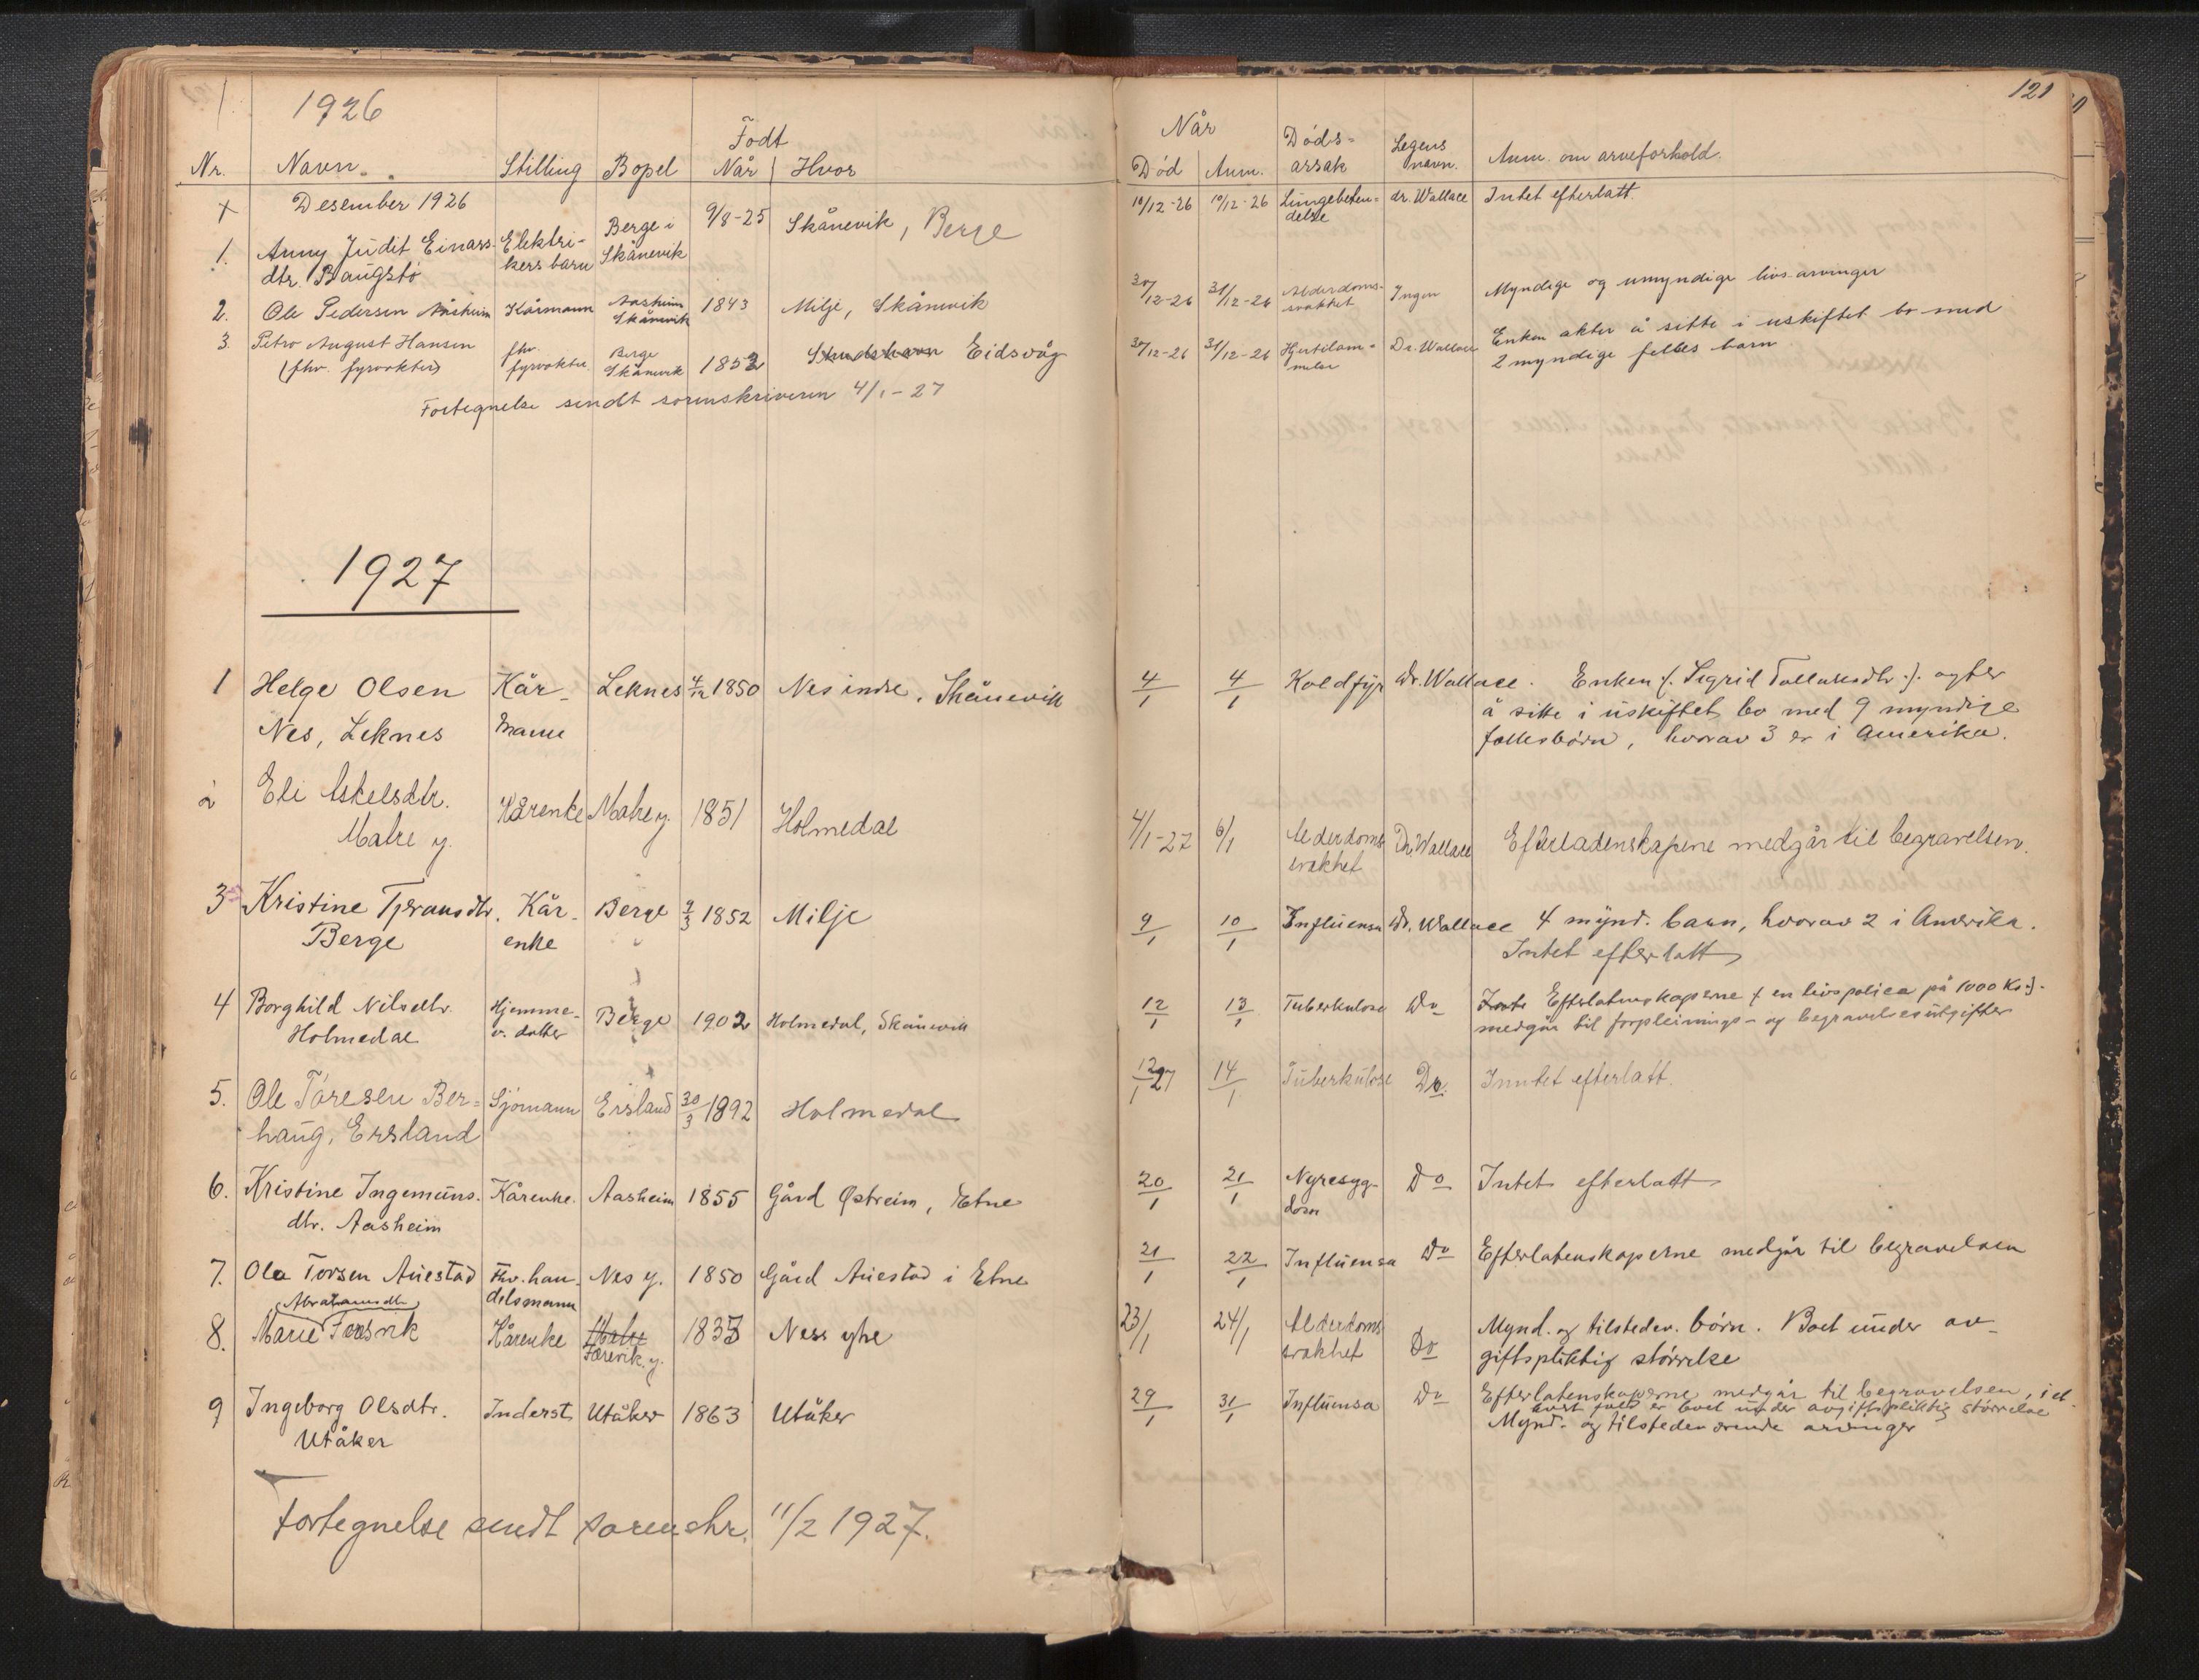 1926
121
Født
Når
Nr. Navn. Stilling Bopel Når Hvor Død Anm. Døds=årsak Legens navn. Anm. om arveforhold.
Desember 1926
1. Anny Judit Einars- Elektri- Berge i 9/8-25 Skånevik, Berge 10/12-26 10/12-26 Lungebeten= dr. Wallace Intet efterlatt.
dtr. Baugstø kers barn Skånevik delse
2. Ole Pedersen Aasheim Kårmann Aasheim 1843 Milje, Skånevik 30/12-26 31/12-26 Alderdoms- Ingen Myndige og umyndige livsarvinger
Skånevik svakhet
3. Petro August Hansen fhv. Berge 1852 Eidsvåg 30/12-26 31/12-26 Hjertelam= Dr. Wallace Enken akter å sitte i uskiftet bo med
(fhv. fyrvokter) fyrvokter Skånevik melse 2 myndige felles barn
Fortegnelse sendt sorenskriveren 4/1-27
1927
1 Helge Olsen Kår- Leknes 4/12 1850 Nes indre, Skånevik 4/1 4/1 Koldfyr Dr. Wallace. Enken (: Sigrid Tollaksdtr :) agter
Nes, Leknes mann å sitte i uskiftet bo med 9 myndige
fællesbørn, hvorav 3 er i Amerika.
2 Eli Askelsdtr. Kårenke Matre y. 1851 Holmedal 4/1-27 6/1 Alderdoms Dr. Wallace Efterladenskapene medgår til begravelsen.
Matre y. svakhet
3 Kristine Tjeransdtr. Kår- Berge 9/3 1852 Milje 9/1 10/1 Influensa Dr. Wallace 4 mynd. barn, hvorav 2 i Amerika.
Berge enke Intet efterlatt
4 Borghild Nilsdtr. Hjemme- Berge 1902 Holmedal, Skånevik 12/1 13/1 Tuberkulose Do Efterlatenskaperne + en livspolice på 1000 Kr :)
Holmedal v. datter medgår til forpleinings- og begravelsesutgifter
5. Ole Toresen Ber= Sjømann Ersland 30/3 1892 Holmedal 12/1 27 14/1 Tuberkulose Do. Inntet efterlatt.
haug, Ersland
6. Kristine Ingemuns- Kårenke. Aasheim 1855 Gård Østreim, Etne 20/1 21/1 Nyresyg- Do Intet efterlatt
dtr. Aasheim dom
7. Ola Torsen Auestad Fhv. han- Nes y. 1850 Gård Auestad i Etne 21/1 22/1 Influensa Do Efterlatenskaperne medgår til begravelsen
delsmann
Abrahamsdtr.
8. Marie Færevik Kårenke Matre 1833 Ness ytre 23/1 24/1 Alderdoms Do Mynd. og tilstedev. børn. Boet under av-
Færevik y. svakhet giftspliktig størrelse
9 Ingeborg Olsdtr. Inderst Utåker 1863 Utåker 29/1 31/1 Influensa Do Efterlatenskaperne medgår til begravelsen, i et-
Utåker hvert fald er boet under avgiftspliktig størrelse
Mynd. og tilstedeværende arvinger
Fortegnelse sendt sorenskr. 11/2 1927.